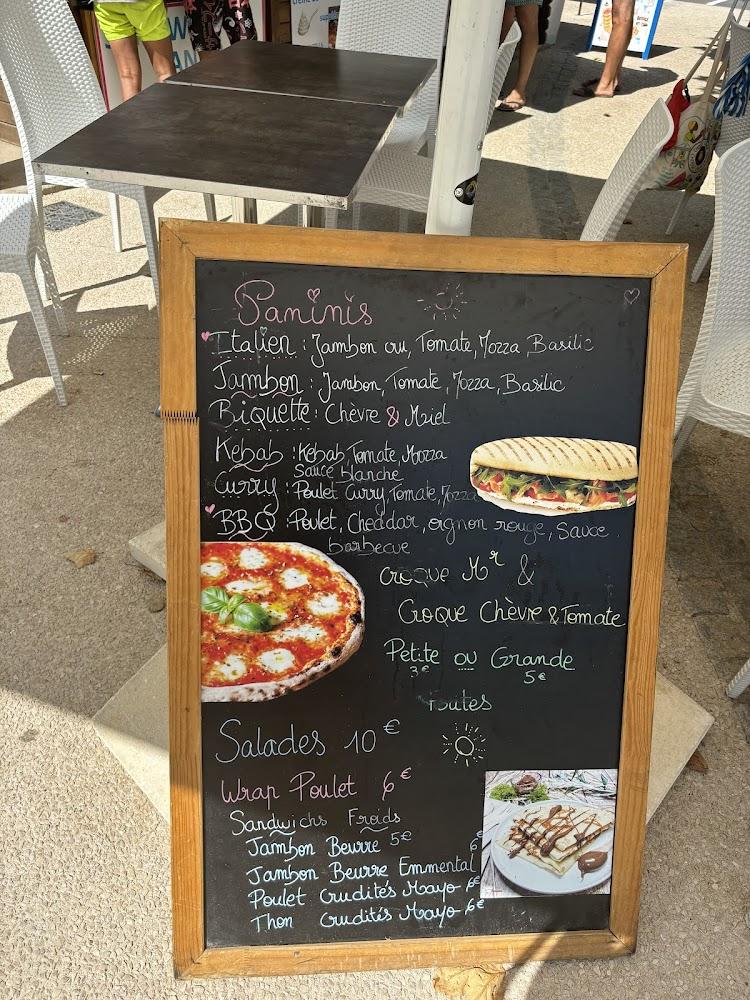 Paninis
Italien : Jambon cru, Tomate, Mozza, Basilic
Jambon : Jambon, Tomate, Mozza, Basilic
Biquette : Chèvre & Miel
Kebab : Kebab, Tomate, Mozza
Sauce blanche
Curry : Poulet Curry, Tomate, Mozza
BBQ : Poulet, Cheddar, oignon rouge, Sauce
barbecue
Croque Mr &
Croque Chèvre & Tomate
Petite ou Grande
3€ 5€
Salades 10€
Wrap Poulet 6€
Sandwichs Froids
Jambon Beurre 5€
Jambon Beurre Emmental 6€
Poulet Crudités Mayo 6€
Thon Crudités Mayo 6€